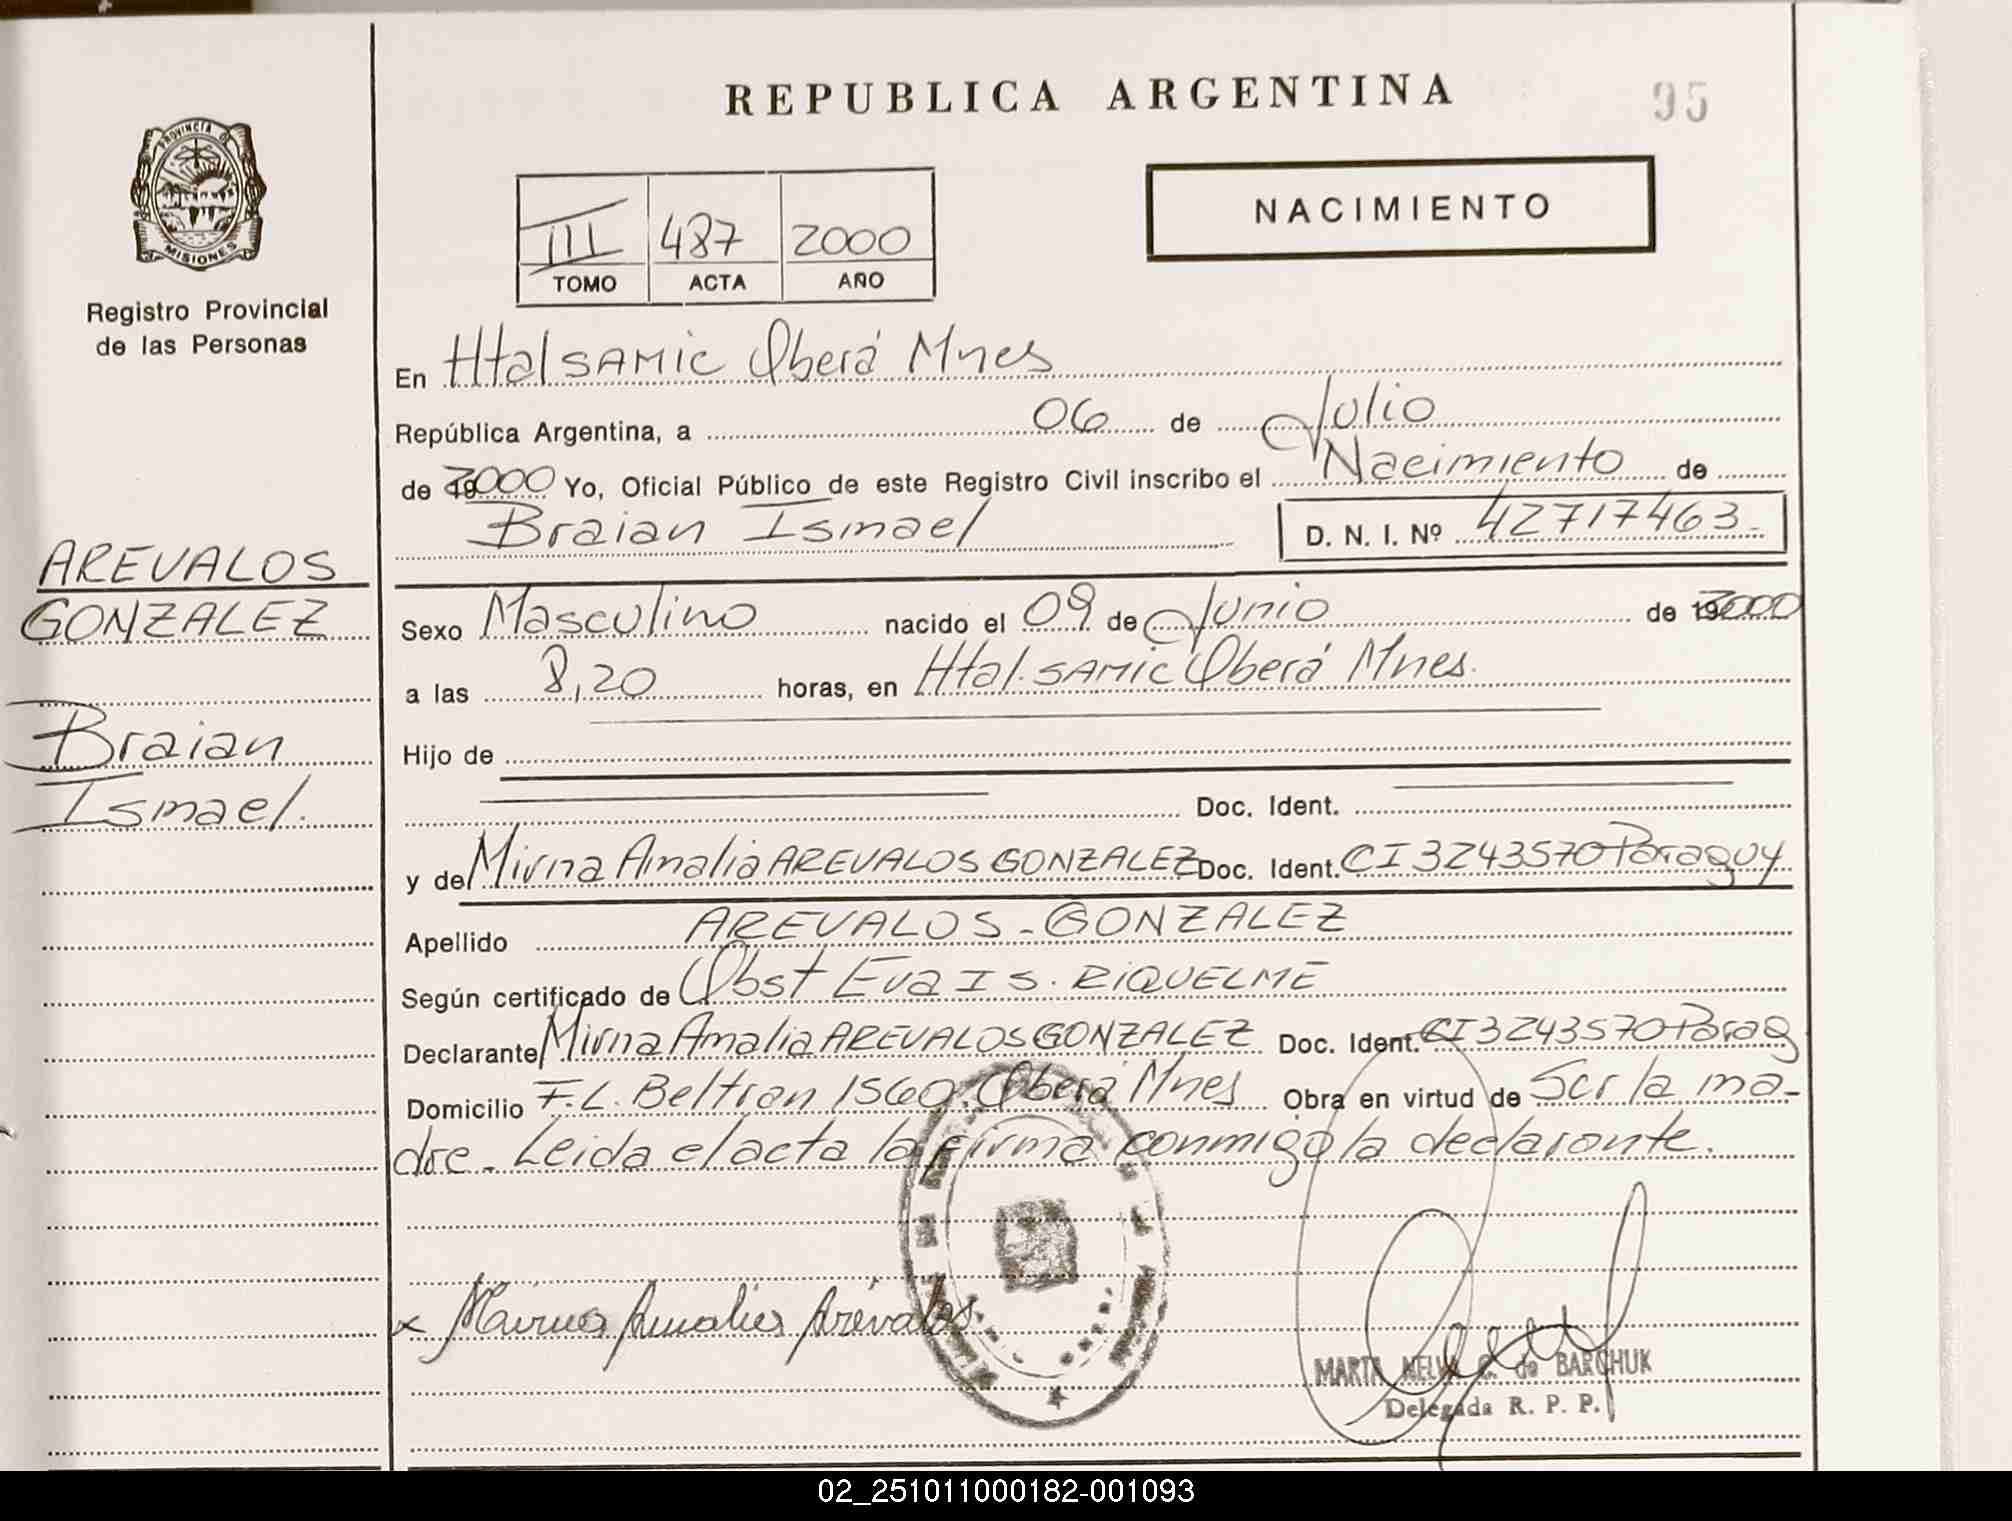 REPUBLICA ARGENTINA
95
PROVINCIA D
MISIONES
Registro Provincial
de las Personas
III 487 2000
TOMO ACTA AÑO
NACIMIENTO
En Htal SAMIC Oberá Mnes
República Argentina, a 06 de Julio
de 2000 Yo, Oficial Público de este Registro Civil inscribo el Nacimiento de
Braian Ismael D. N. I. Nº 42717463.-
AREVALOS
GONZALEZ
Braian
Ismael.
Sexo Masculino nacido el 09 de Junio de 2000
a las 8,20 horas, en Htal. SAMIC Oberá Mnes.
Hijo de
Doc. Ident.
y de Mirna Amalia AREVALOS GONZALEZ Doc. Ident. CI 3243570 Paraguy.
Apellido AREVALOS - GONZALEZ
Según certificado de Obst Eva IS. RIQUELME
Declarante Mirna Amalia AREVALOS GONZALEZ Doc. Ident. CI 3243570 Parag
Domicilio F.L. Beltran 1560. Oberá Mnes Obra en virtud de Ser la ma-
dre. Leida el acta la firma conmigo la declarante.
x Mirna Amalia Arévalos
MARTA NELVA C. de BARCHUK
Delegada R. P. P.
02_251011000182-001093